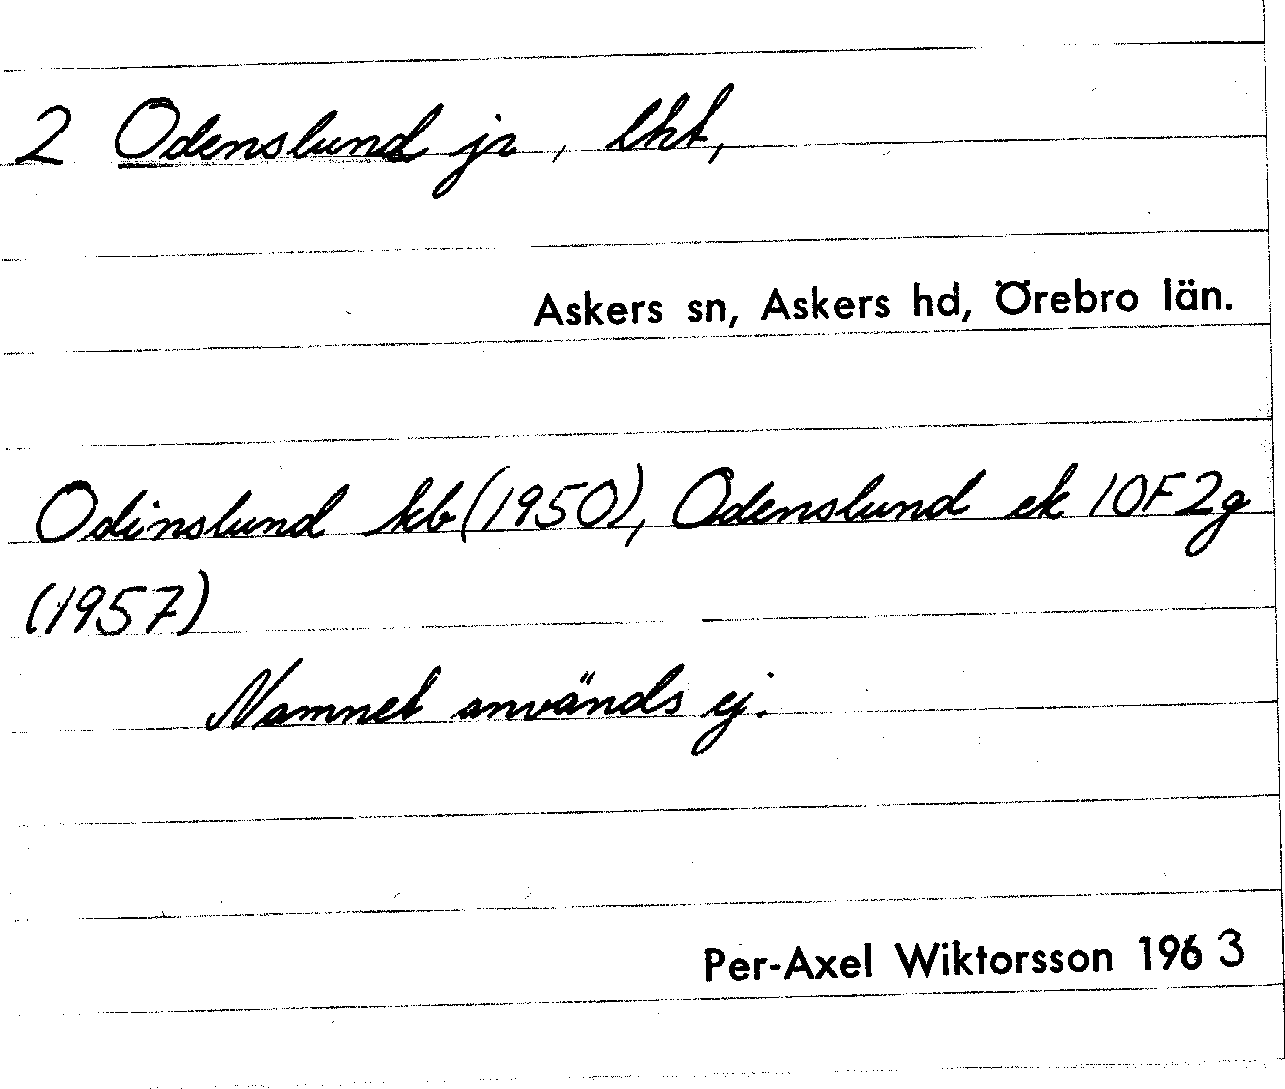 2 Odenslund ja, lht,
Askers sn, Askers hd, Örebro län.
Odinslund kb (1950), Odenslund ek 10F2g
(1957)
Namnet används ej.
Per-Axel Wiktorsson 1963